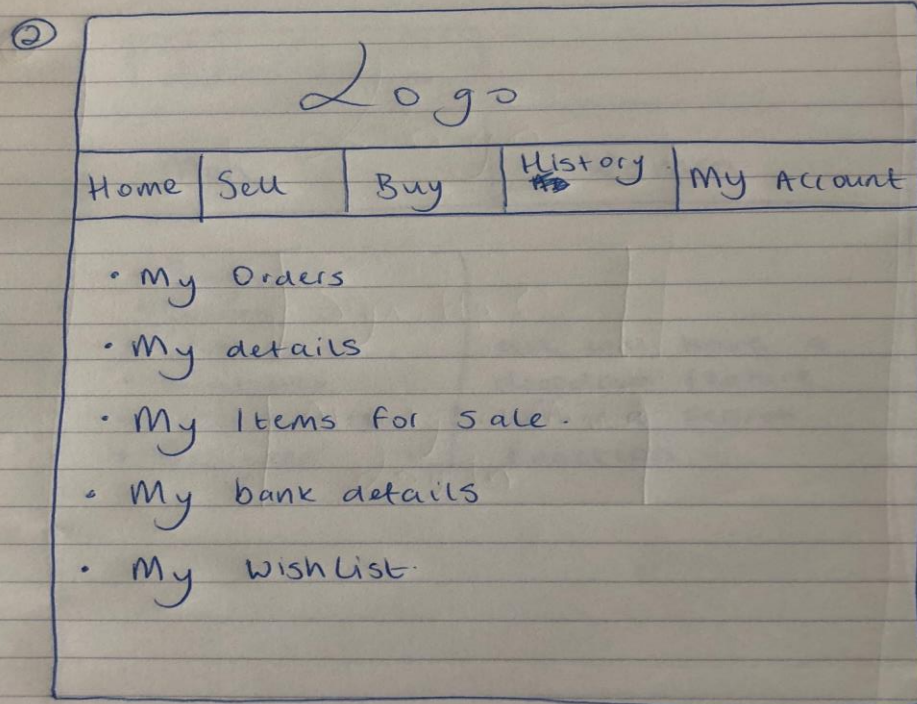 ②
Logo
Home Sell Buy History My Account
• My Orders
• My details
• My Items for sale.
• My bank details
• My wishlist.